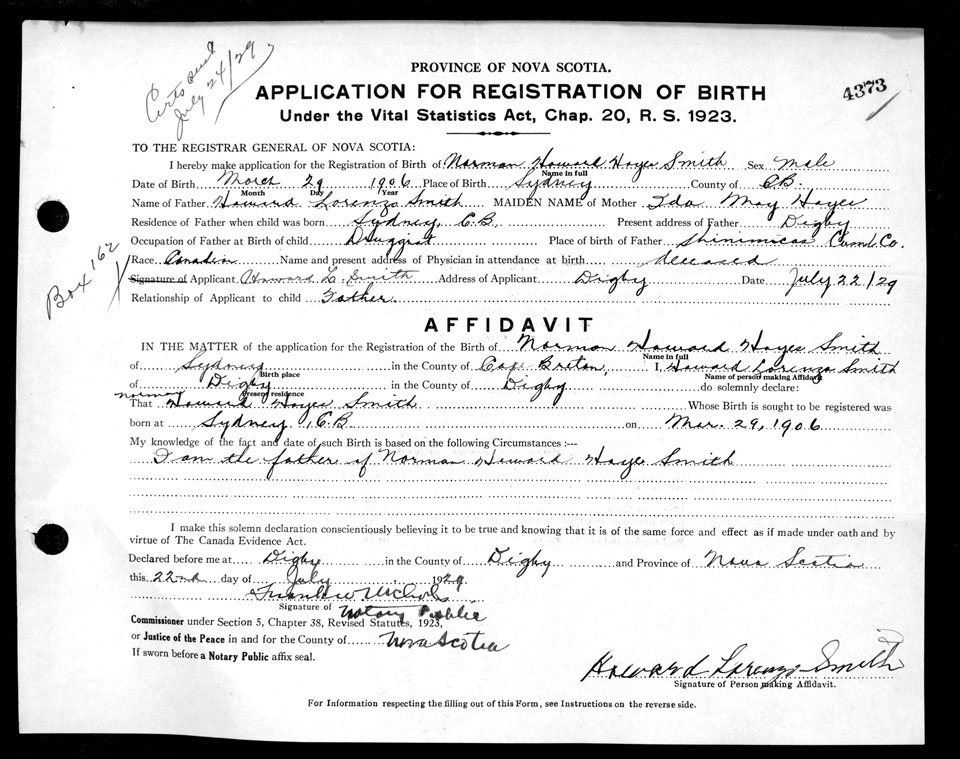 Certs sent
July 24/29
4373
PROVINCE OF NOVA SCOTIA.
APPLICATION FOR REGISTRATION OF BIRTH
Under the Vital Statistics Act, Chap. 20, R. S. 1923.
TO THE REGISTRAR GENERAL OF NOVA SCOTIA:
I hereby make application for the Registration of Birth of Norman Howard Hayes Smith Sex Male
Name in full
Date of Birth March 29 1906 Place of Birth Sydney County of C.B.
Month Day Year
Name of Father Howard Lorenzo Smith MAIDEN NAME of Mother Ida May Hayes
Residence of Father when child was born Sydney, C.B. Present address of Father Digby
Occupation of Father at Birth of child Druggist Place of birth of Father Shinimicas Cumb. Co.
Race Canadian Name and present address of Physician in attendance at birth deceased
Box 162
Signature of Applicant Howard L. Smith Address of Applicant Digby Date July 22/29
Relationship of Applicant to child Father.
AFFIDAVIT
IN THE MATTER of the application for the Registration of the Birth of Norman Howard Hayes Smith
Name in full
of Sydney in the County of Cape Breton, I, Howard Lorenzo Smith
Birth place Name of person making Affidavit
of Digby in the County of Digby do solemnly declare:
present residence
Norman
That Howard Hayes Smith Whose Birth is sought to be registered was
born at Sydney, C.B. on Mar. 29, 1906
My knowledge of the fact and date of such Birth is based on the following Circumstances :—
I am the father of Norman Howard Hayes Smith
I make this solemn declaration conscientiously believing it to be true and knowing that it is of the same force and effect as if made under oath and by
virtue of The Canada Evidence Act.
Declared before me at Digby in the County of Digby and Province of Nova Scotia
this 22nd day of July 1929
Signature of Notary Public
Commissioner under Section 5, Chapter 38, Revised Statutes, 1923,
or Justice of the Peace in and for the County of Nova Scotia
If sworn before a Notary Public affix seal.
Howard Lorenzo Smith
Signature of Person making Affidavit.
For Information respecting the filling out of this Form, see Instructions on the reverse side.